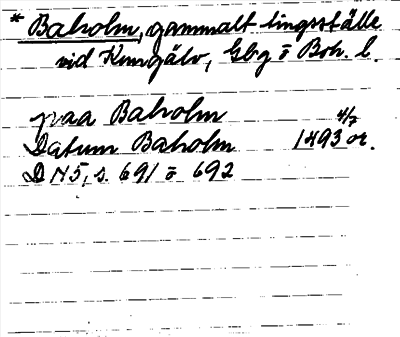 * Baholm, gammalt tingsställe
vid Kungälv, Gbg o Boh. l.
paa Baholm 4/7
Datum Baholm 1493 or.
DN 5, s. 691 o 692